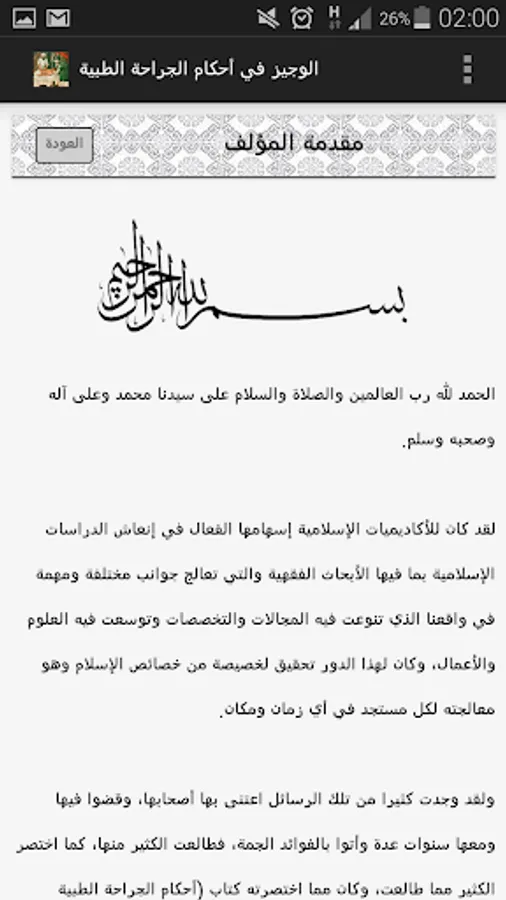 26% 02:00
H
الوجيز في أحكام الجراحة الطبية
مقدمة المؤلف
العودة
بسم الله الرحمن الرحيم
الحمد لله رب العالمين والصلاة والسلام على سيدنا محمد وعلى آله
وصحبه وسلم.
لقد كان للأكاديميات الإسلامية إسهامها الفعال في إنعاش الدراسات
الإسلامية بما فيها الأبحاث الفقهية والتي تعالج جوانب مختلفة ومهمة
في واقعنا الذي تنوعت فيه المجالات والتخصصات وتوسعت فيه العلوم
والأعمال، وكان لهذا الدور تحقيق لخصيصة من خصائص الإسلام وهو
معالجته لكل مستجد في أي زمان ومكان.
ولقد وجدت كثيرا من تلك الرسائل اعتنى بها أصحابها، وقضوا فيها
ومعها سنوات عدة وأتوا بالفوائد الجمة، فطالعت الكثير منها، كما اختصر
الكثير مما طالعت، وكان مما اختصرته كتاب (أحكام الجراحة الطبية